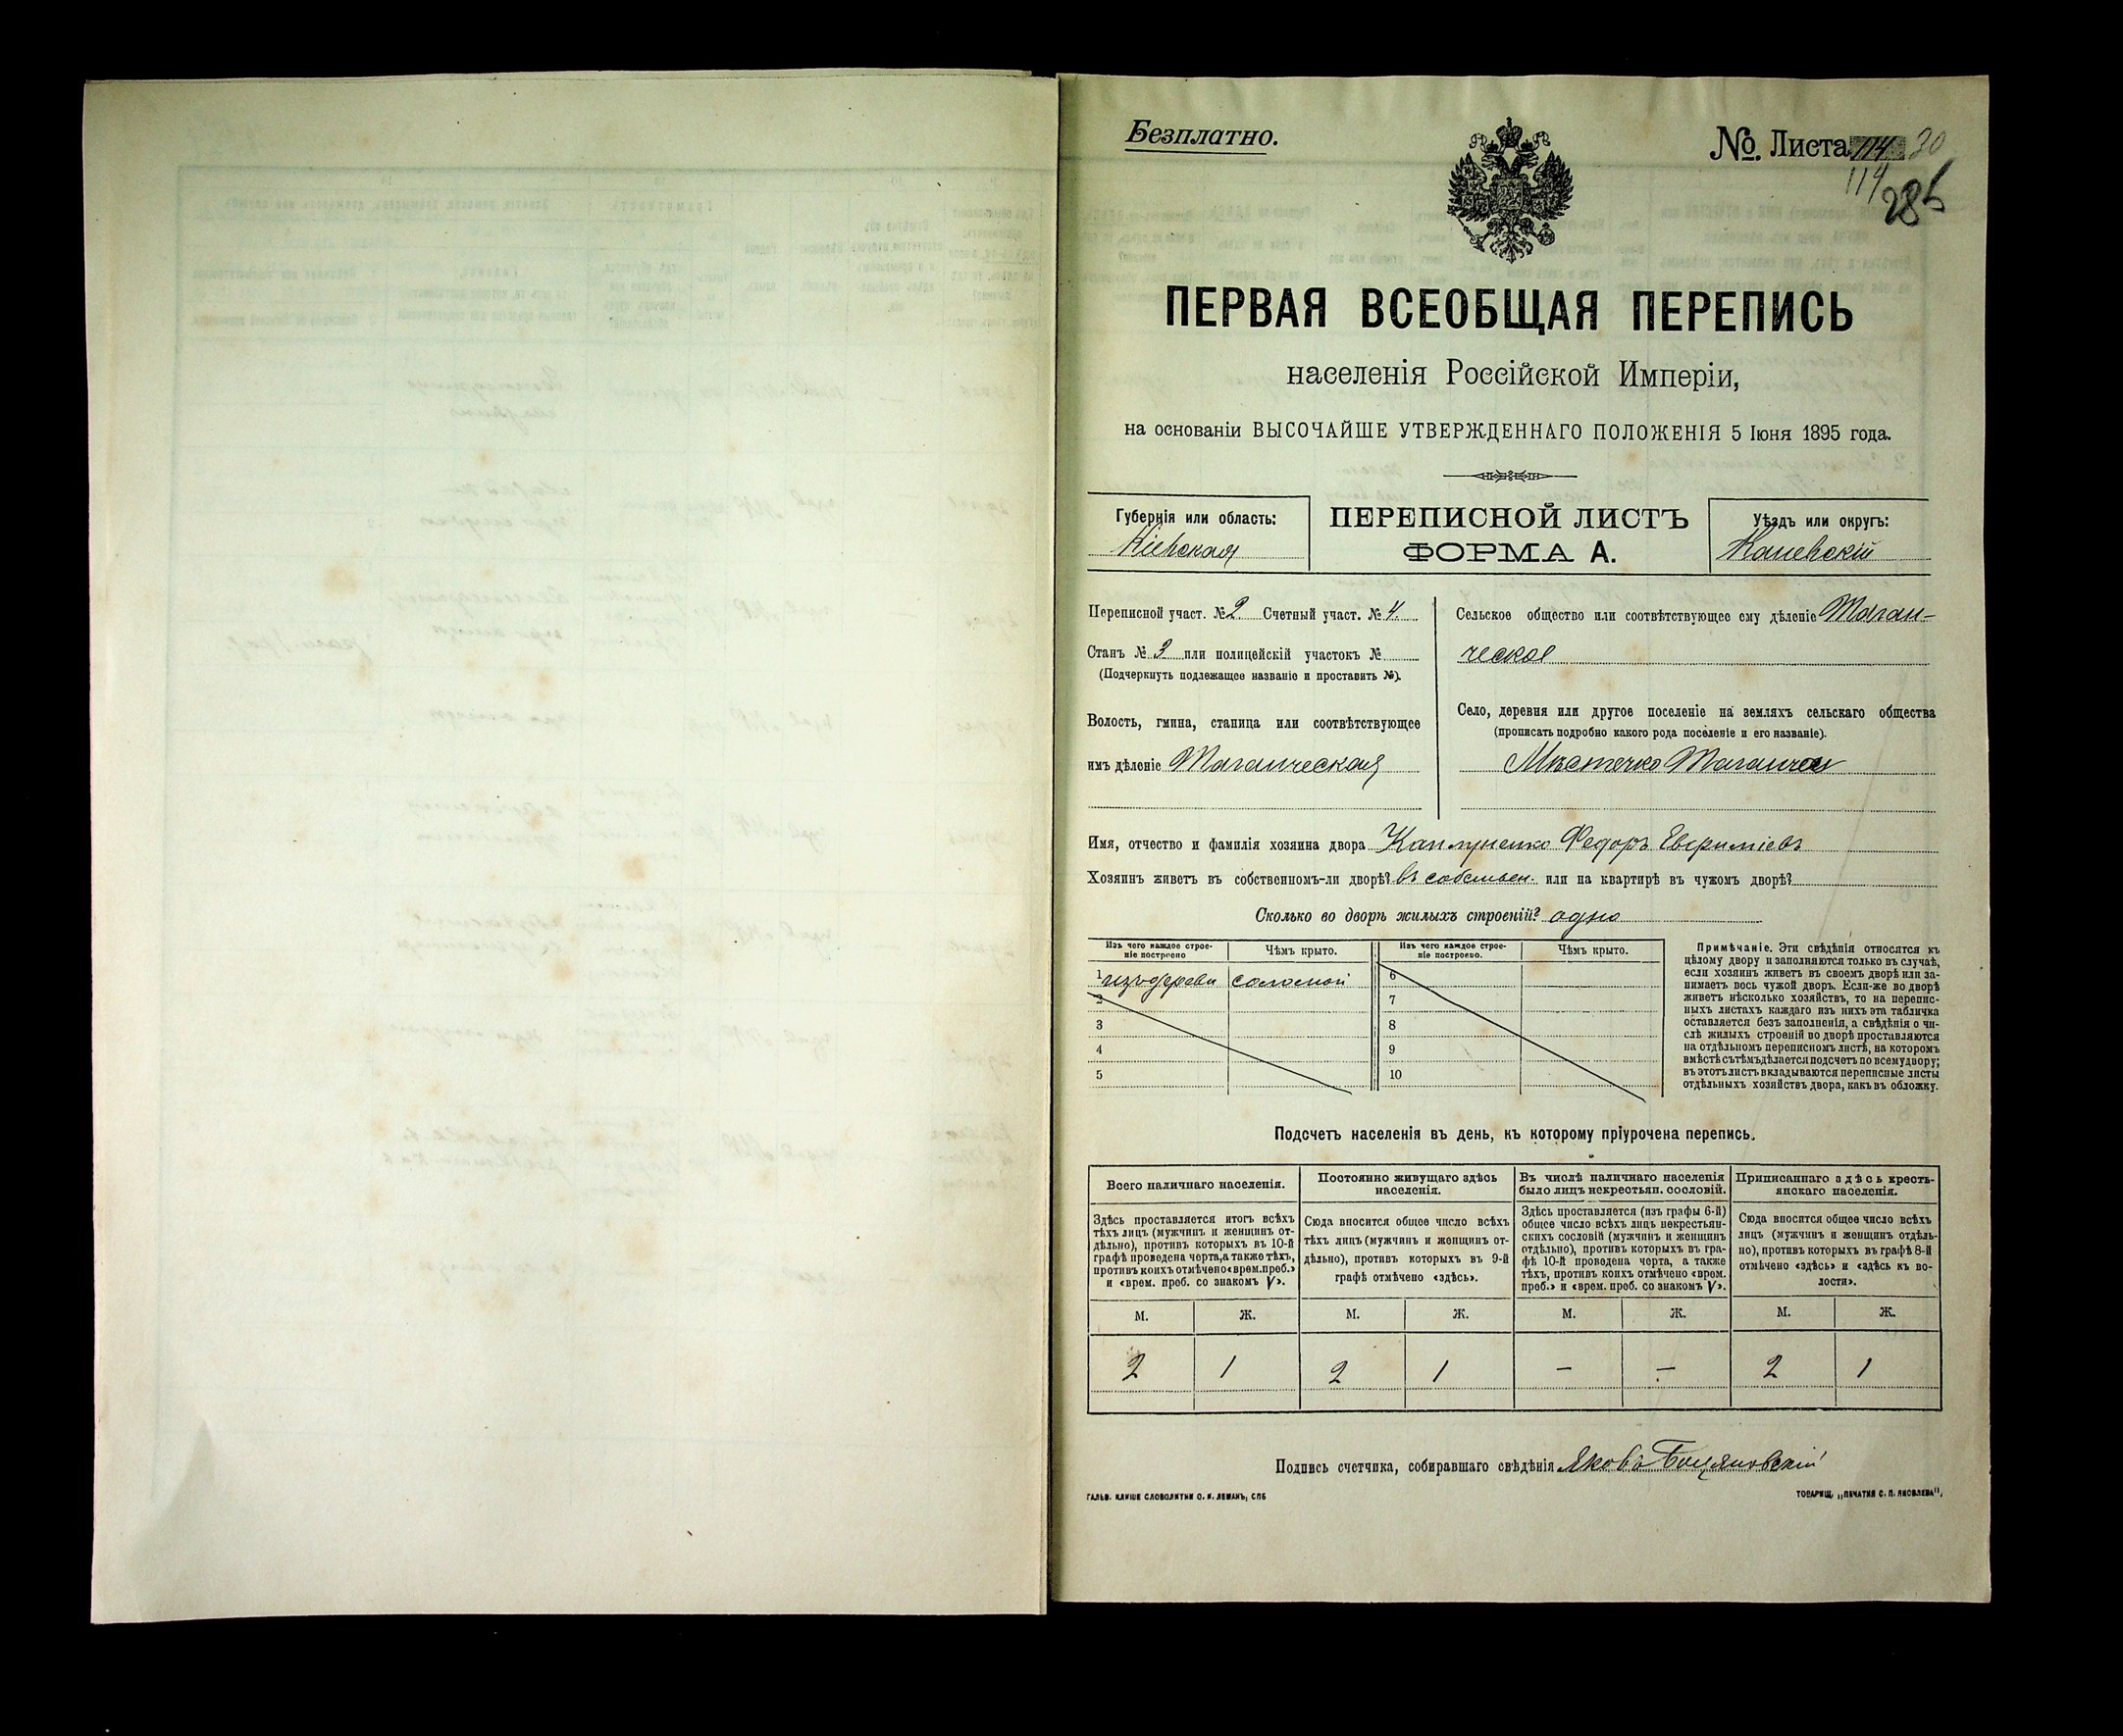 Безплатно.
№ Листа 114 30
114
286
ПЕРВАЯ ВСЕОБЩАЯ ПЕРЕПИСЬ
населенія Россійской Имперіи,
на основаніи ВЫСОЧАЙШЕ УТВЕРЖДЕННАГО ПОЛОЖЕНІЯ 5 Іюня 1895 года.
Губернія или область:
Кіевская
ПЕРЕПИСНОЙ ЛИСТЪ
ФОРМА А.
Уѣздъ или округъ:
Каневскій
Переписной участ. № 2. Счетный участ. № 4.
Станъ № 3 или полицейскій участокъ №
(Подчеркнуть подлежащее названіе и проставить №).
Волость, гмина, станица или соотвѣтствующее
имъ дѣленіе Таганческая
Сельское общество или соотвѣтствующее ему дѣленіе Таган-
ческое
Село, деревня или другое поселеніе на земляхъ сельскаго общества
(прописать подробно какого рода поселеніе и его названіе).
Мѣстечко Таганча
Имя, отчество и фамилія хозяина двора Каплуненко Федоръ Евфиміевъ
Хозяинъ живетъ въ собственномъ-ли дворѣ? въ собствен. или на квартирѣ въ чужомъ дворѣ?
Сколько во дворѣ жилыхъ строеній? одно
Изъ чего каждое строе-
ніе построено
Чѣмъ крыто.
Изъ чего каждое строе-
ніе построено.
Чѣмъ крыто.
1 изъ дерева соломой 6
2 7
3 8
4 9
5 10
Примѣчаніе. Эти свѣдѣнія относятся къ
цѣлому двору и заполняются только въ случаѣ,
если хозяинъ живетъ въ своемъ дворѣ или за-
нимаетъ весь чужой дворъ. Если-же во дворѣ
живетъ нѣсколько хозяйствъ, то на перепис-
ныхъ листахъ каждаго изъ нихъ эта табличка
оставляется безъ заполненія, а свѣдѣнія о чи-
слѣ жилыхъ строеній во дворѣ проставляются
на отдѣльномъ переписномъ листѣ, на которомъ
вмѣстѣ съ тѣмъ дѣлается подсчетъ по всему двору;
въ этотъ листъ вкладываются переписные листы
отдѣльныхъ хозяйствъ двора, какъ въ обложку.
Подсчетъ населенія въ день, къ которому пріурочена перепись.
Всего наличнаго населенія.
Постоянно живущаго здѣсь
населенія.
Въ числѣ наличнаго населенія
было лицъ некрестьян. сословій.
Приписаннаго здѣсь кресть-
янскаго населенія.
Здѣсь проставляется итогъ всѣхъ
тѣхъ лицъ (мужчинъ и женщинъ от-
дѣльно), противъ которыхъ въ 10-й
графѣ проведена черта, а также тѣхъ,
противъ коихъ отмѣчено «врем. преб.»
и «врем. преб. со знакомъ V».
Сюда вносится общее число всѣхъ
тѣхъ лицъ (мужчинъ и женщинъ от-
дѣльно), противъ которыхъ въ 9-й
графѣ отмѣчено «здѣсь».
Здѣсь проставляется (изъ графы 6-й)
общее число всѣхъ лицъ некрестьян-
скихъ сословій (мужчинъ и женщинъ
отдѣльно), противъ которыхъ въ гра-
фѣ 10-й проведена черта, а также
тѣхъ, противъ коихъ отмѣчено «врем.
преб.» и «врем. преб. со знакомъ V».
Сюда вносится общее число всѣхъ
лицъ (мужчинъ и женщинъ отдѣль-
но), противъ которыхъ въ графѣ 8-й
отмѣчено «здѣсь» и «здѣсь къ во-
лости».
М. Ж. М. Ж. М. Ж. М. Ж.
2 1 2 1 — — 2 1
Подпись счетчика, собиравшаго свѣдѣнія Яковъ Боцяновскій
ГАЛЬВ. КЛИШЕ СЛОВОЛИТНИ О. И. ЛЕМАНЪ, СПБ
ТОВАРИЩ. „ПЕЧАТНЯ С. П. ЯКОВЛЕВА",